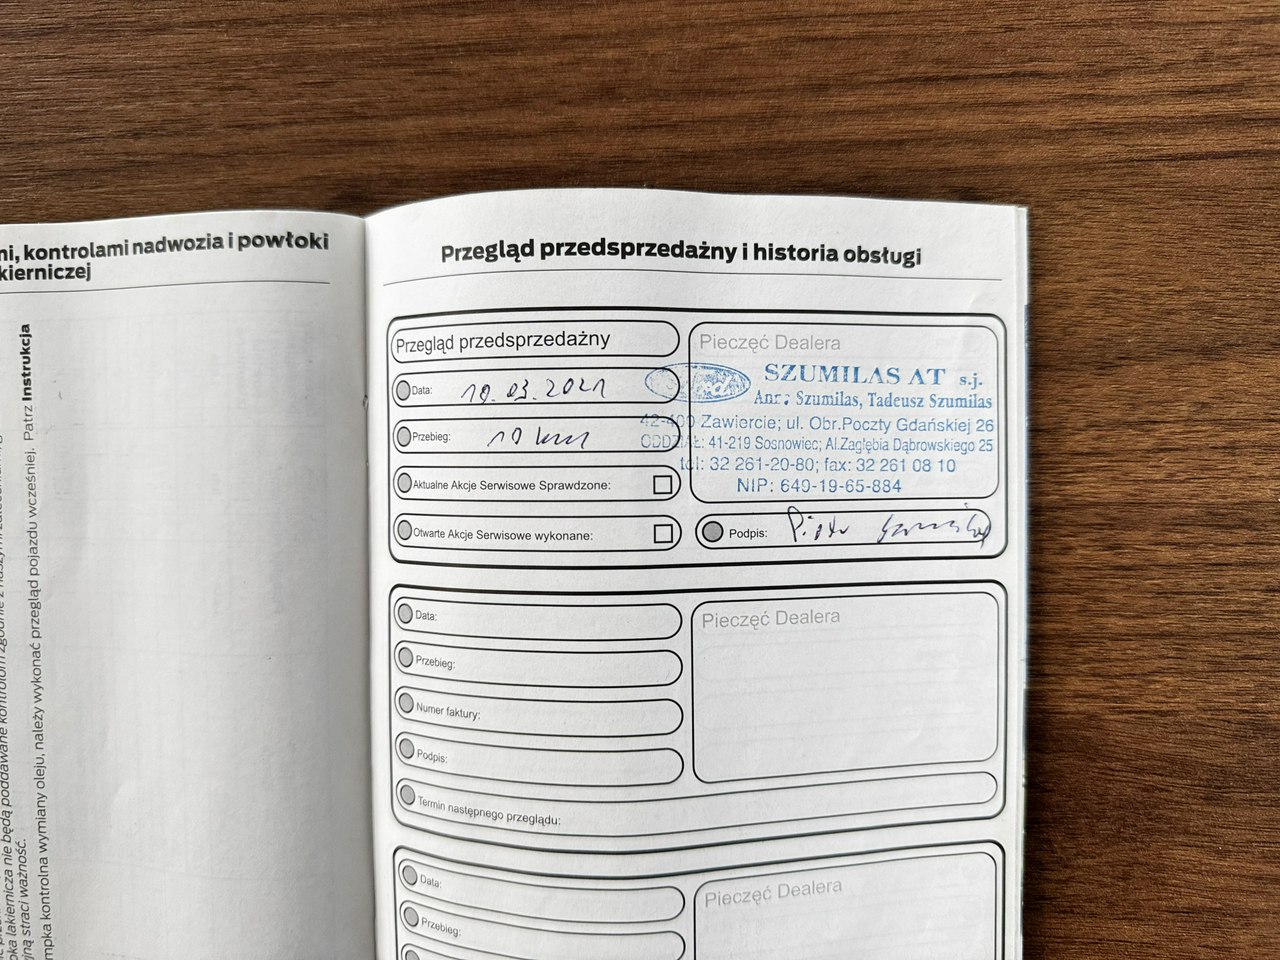 ni, kontrolami nadwozia i powłoki
kierniczej
ka lakiernicza nie będą poddawane kontrolom zgodnie z naszymi
jną straci ważność.
mpka kontrolna wymiany oleju, należy wykonać przegląd pojazdu wcześniej. Patrz Instrukcja
Przegląd przedsprzedażny i historia obsługi
Przegląd przedsprzedażny
Data: 10.03.2021
Przebieg: 10 km
Aktualne Akcje Serwisowe Sprawdzone:
Otwarte Akcje Serwisowe wykonane:
Pieczęć Dealera
SZUMILAS AT s.j.
Szumilas, Tadeusz Szumilas
42-400 Zawiercie; ul. Obr.Poczty Gdańskiej 26
ODDZIAŁ: 41-219 Sosnowiec; Al.Zagłębia Dąbrowskiego 25
tel: 32 261-20-80; fax: 32 261 08 10
NIP: 649-19-65-884
Podpis: Piotr
Data:
Przebieg:
Numer faktury:
Podpis:
Termin następnego przeglądu:
Pieczęć Dealera
Data:
Przebieg:
Pieczęć Dealera